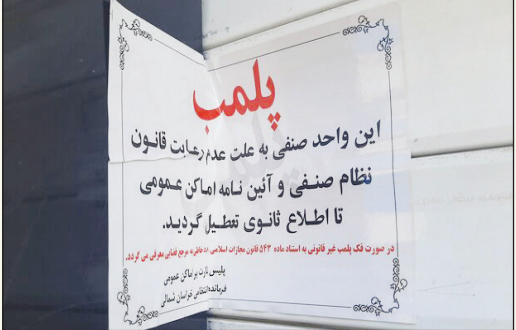 پلمب
این واحد صنفی به علت عدم رعایت قانون
نظام صنفی و آئین نامه اماکن عمومی
تا اطلاع ثانوی تعطیل گردید.
در صورت فک پلمب غیر قانونی به استناد ماده ۵۴۳ قانون مجازات اسلامی خاطی به مرجع قضایی معرفی می گردد.
پلیس نظارت بر اماکن عمومی
فرماندهی انتظامی خراسان شمالی